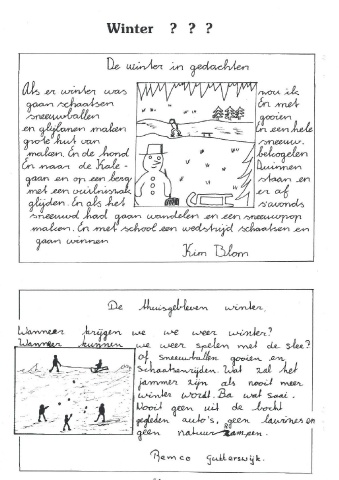 Winter ? ? ?
De winter in gedachten
Als er winter was nou ik
gaan schaatsen En met
sneeuwballen gooien
en glijbanen maken En een hele
grote hut van sneeuw.
maken. En de hond bekogelen
En naar de Kale - Duinnen
gaan en op een berg staan en
met een vuilniszak er af
glijden. En als het s'avonds
sneeuwd had gaan wandelen en een sneeuwpop
maken. En met school een wedstrijd schaatsen en
gaan winnen
Kim Blom
De thuisgebleven winter.
Wanneer krijgen we we weer winter?
Wanneer kunnen we weer spelen met de slee?
Of sneeuwballen gooien en
Schaatsenrijden. Wat zal het
jammer zijn als nooit meer
winter wordt. Ba wat saai.
Nooit geen uit de bocht
gegleden auto's, geen lawines en
geen natuur rampen.
Remco Gutterswijk.